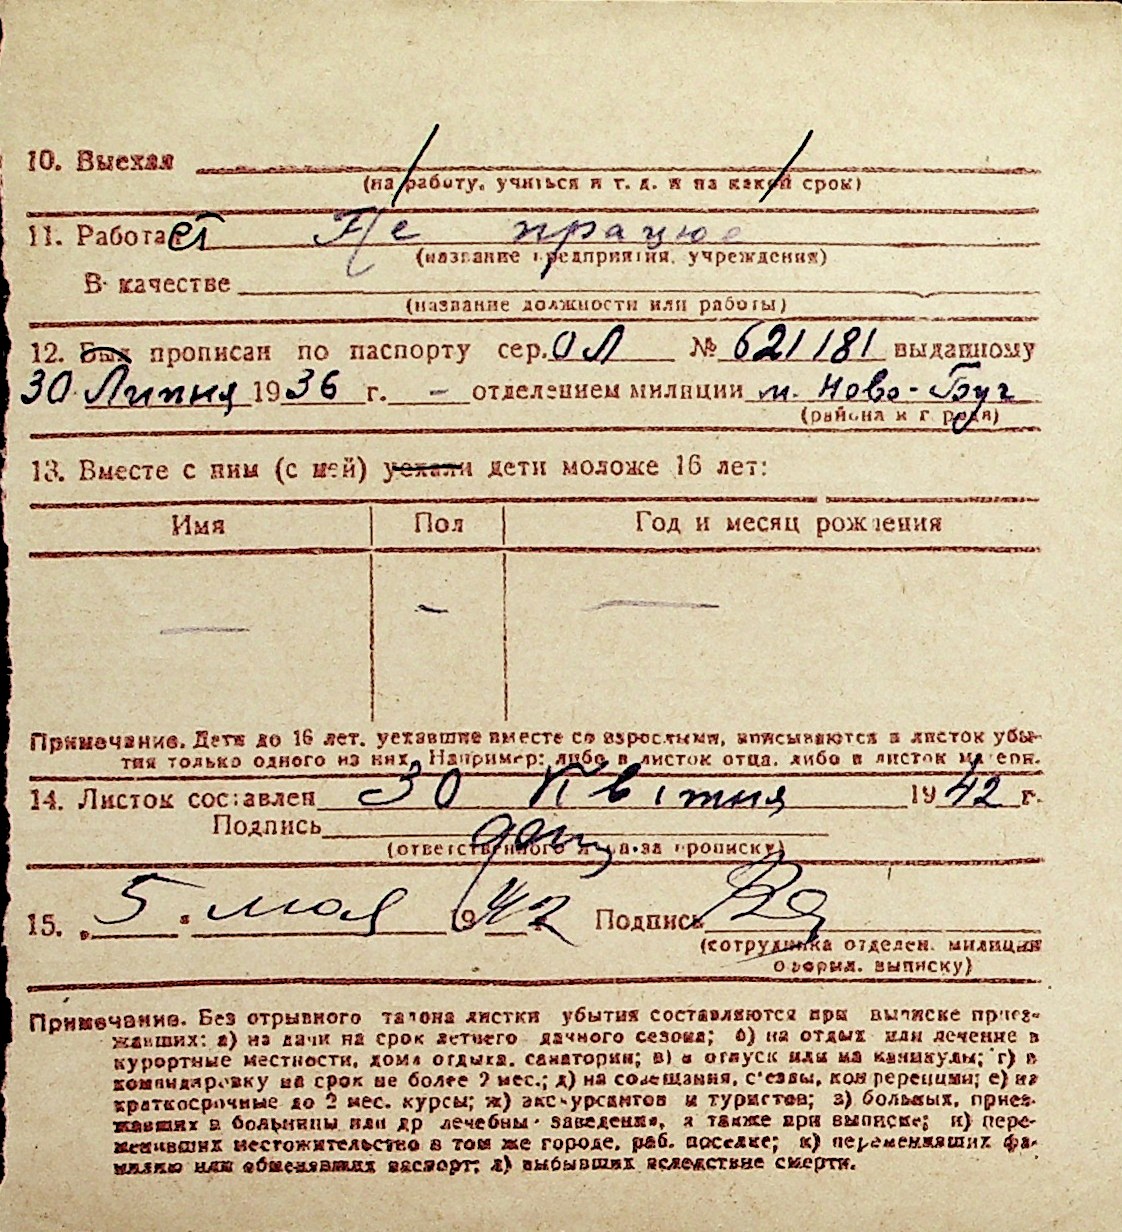 10. Выехал
(на работу, учиться и т. д. и на какой срок)
11. Работает Не працює
(название предприятия, учреждения)
В качестве
(название должности или работы)
12. Был прописан по паспорту сер. ОЛ № 621181 выданному
30 Липня 1936 г. - отделением милиции м. Ново-Буг
(района и города)
13. Вместе с ним (с ней) уехали дети моложе 16 лет:
Имя Пол Год и месяц рождения
— - —
Примечание. Дети до 16 лет, уехавшие вместе со взрослыми, вписываются в листок убы-
тия только одного из них. Например: либо в листок отца, либо в листок матери.
14. Листок составлен 30 Квітня 1942 г.
Подпись
(ответственного лица за прописку)
15. 5 мая 1942 Подпись
(сотрудника отделен. милиции
оформл. выписку)
Примечание. Без отрывного талона листки убытия составляются при выписке приез-
жавших: а) на дачи на срок летнего дачного сезона; б) на отдых или лечение в
курортные местности, дома отдыха, санатории; в) в отпуск или на каникулы; г) в
командировку на срок не более 2 мес.; д) на совещания, с'езды, конференции; е) на
краткосрочные до 2 мес. курсы; ж) экскурсантов и туристов; з) больных, приез-
жавших в больницы или др лечебны заведения, а также при выписке; и) пере-
менивших местожительство в том же городе, раб. поселке; к) переменявших фа-
милию или обменявших паспорт; л) выбывших вследствие смерти.